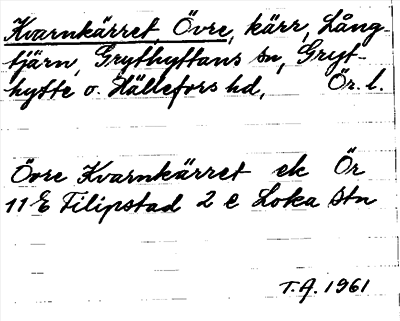 Kvarnkärret, Övre, kärr, Lång-
tjärn, Grythyttans sn, Gryt-
hytte o. Hällefors hd, Ör. l.
Övre Kvarnkärret ek Ör
11 E Filipstad 2 e Loka stn
T.A. 1961